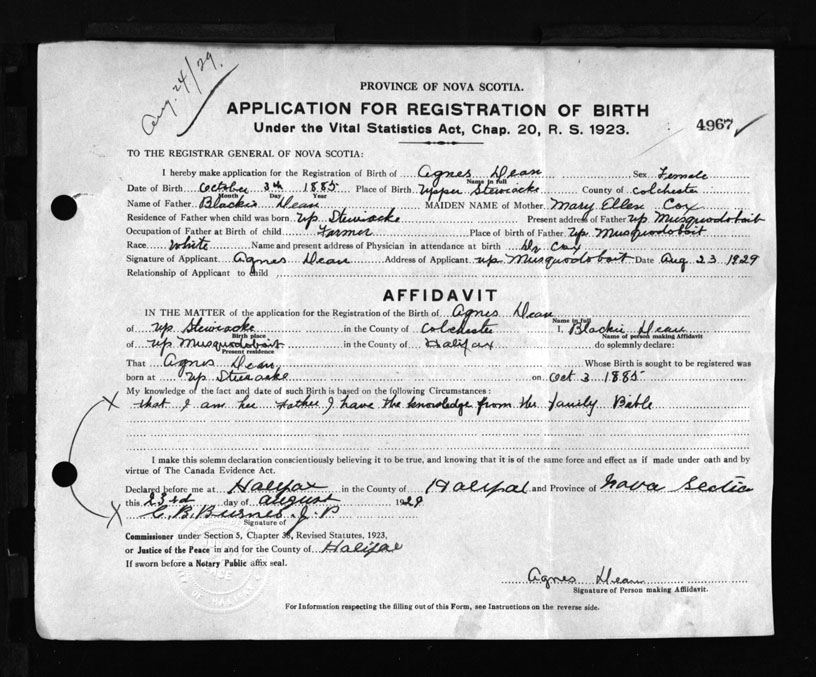 Aug. 24/29.
PROVINCE OF NOVA SCOTIA.
APPLICATION FOR REGISTRATION OF BIRTH
4967
Under the Vital Statistics Act, Chap. 20, R. S. 1923.
TO THE REGISTRAR GENERAL OF NOVA SCOTIA:
I hereby make application for the Registration of Birth of Agnes Dean Sex Female
Name in full
Date of Birth October 3th 1885 Place of Birth Upper Stewiacke County of Colchester
Month Day Year
Name of Father Blackie Dean MAIDEN NAME of Mother Mary Ellen Cox
Residence of Father when child was born Up Stewiacke Present address of Father Up Musquodoboit
Occupation of Father at Birth of child Farmer Place of birth of Father Up. Musquodoboit
Race White Name and present address of Physician in attendance at birth Dr Cox
Signature of Applicant Agnes Dean Address of Applicant Up. Musquodoboit Date Aug 23 1929
Relationship of Applicant to Child
AFFIDAVIT
IN THE MATTER of the application for the Registration of the Birth of Agnes Dean
Name in full
of Up Stewiacke in the County of Colchester I, Blackie Dean
Birth place Name of person making Affidavit
of Up Musquodoboit in the County of Halifax do solemnly declare:
Present residence
That Agnes Dean Whose Birth is sought to be registered was
born at Up Stewiacke on Oct 3 1885
My knowledge of the fact and date of such Birth is based on the following Circumstances:
X that I am her Father I have the knowledge from the family Bible
I make this solemn declaration conscientiously believing it to be true, and knowing that it is of the same force and effect as if made under oath and by
virtue of The Canada Evidence Act.
Declared before me at Halifax in the County of Halifax and Province of Nova Scotia
this 23rd day of August 1929
X C. B. Burnes J. P
Signature of
Commissioner under Section 5, Chapter 38, Revised Statutes, 1923,
or Justice of the Peace in and for the County of Halifax
If sworn before a Notary Public affix seal.
Agnes Dean
Signature of Person making Affidavit.
For Information respecting the filling out of this Form, see Instructions on the reverse side.